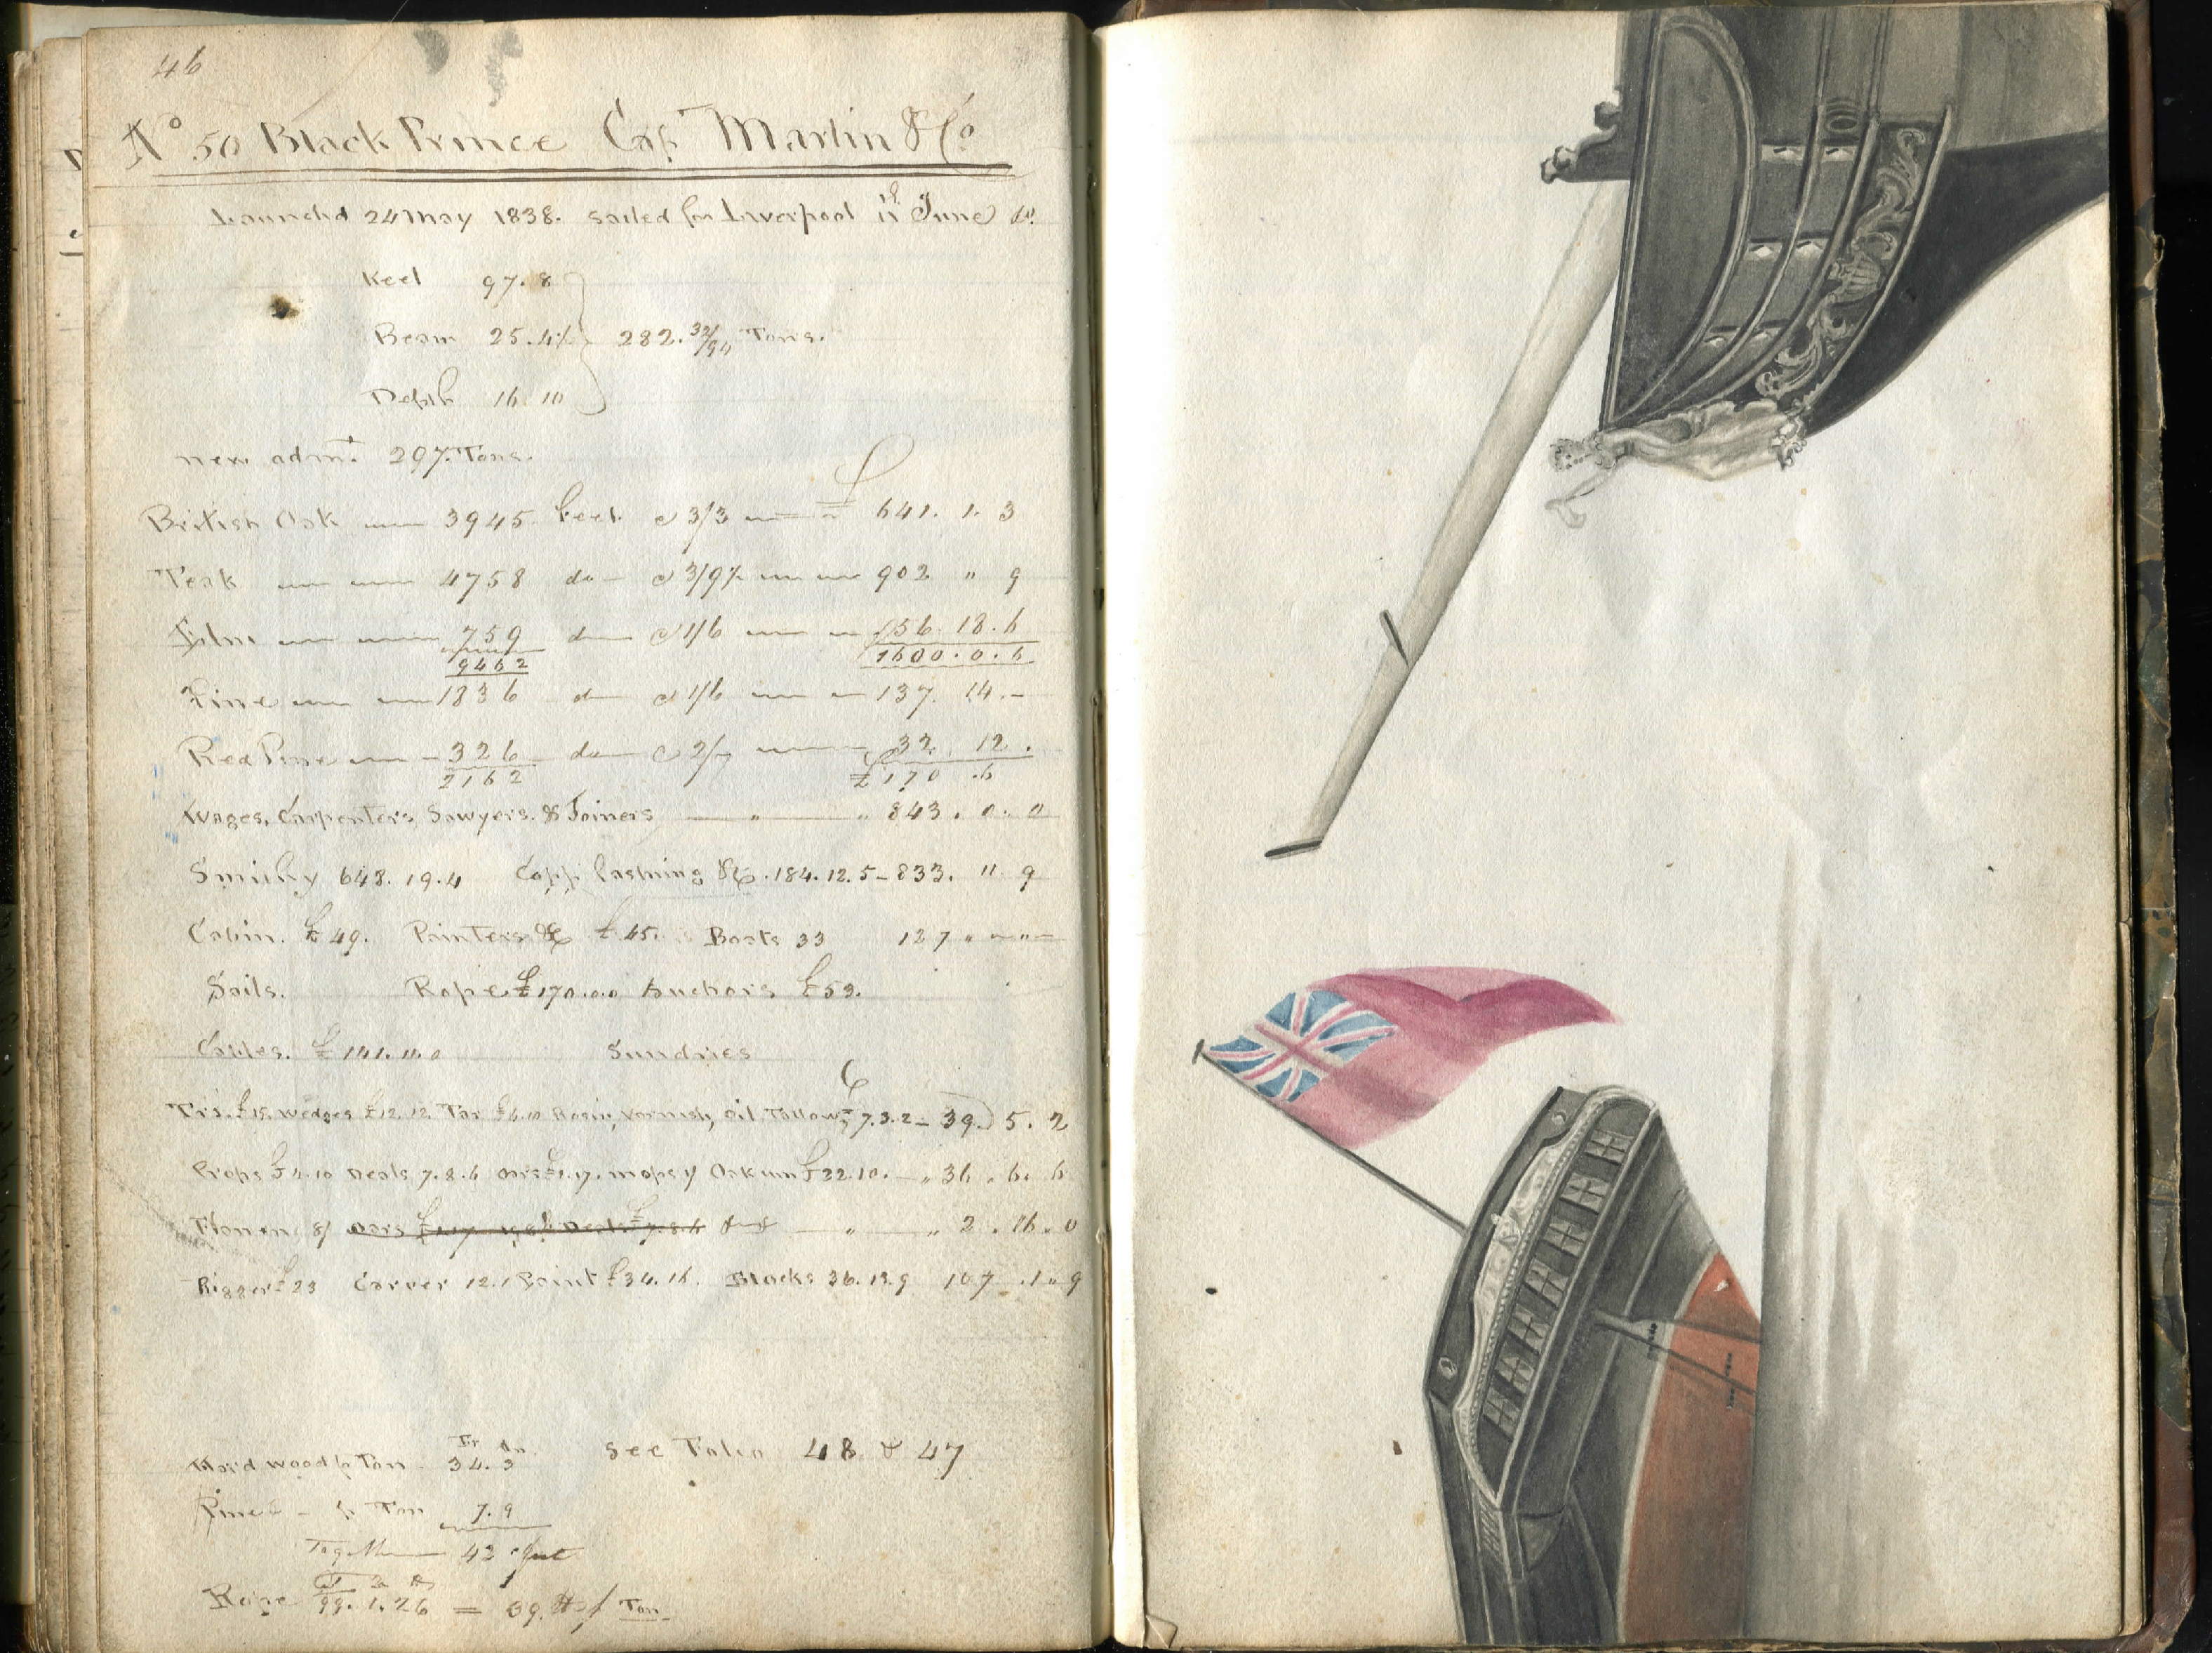 46
No 50 Black Prince Cap Martin & Co
Launched 24 May 1838. sailed for Liverpool 11 June do.
Keel 97.8
Beam 25.4½ 282.32/94 Tons.
Depth 16 10
new admt. 297 Tons.
British Oak 3945 feet @ 3/3 £ 641. 1. 3
Teak 4758 do @ 3/9½ 902 " 9
Elm 759 do @ 1/6 56. 18. 6
9462 1600. 0. 6
Pine 1836 do @ 1/6 137. 14. -
Red Pine 326 do @ 2/- 32. 12.
2162 £170 .6
Wages, Carpenters, Sawyers. & Joiners " " 843. 0. 0
Smithy 648. 19. 4 Copp fastning &c. 184. 12. 5 - 833. 11 9
Cabin. £ 49. Painters &c £ 45. Boats 33 127 " "
Sails. Rope £170.0.0 Anchors £59.
Cables. £ 141.11.0 Sundries
£15. wedges £12.12 Tar £6.10 Rosin, varnish, oil, Tallow, 7.3.2 - 39. 5. 2
Props £4.10 Deals 7.8.6 oars £1.17. mops 1/ Oakum £22.10. - " 36 . 6. 6
8/ oars Deals £7.8.6 " " 2 . 16. 0
Rigger £23 Carver 12.1 Paint £34.16. Blocks 36.13.9 107 . 1 " 9
Hard wood p Ton Ft 34. 3 See Folio 48 & 47
Pine - p Ton 7. 9
Together 42 feet
Rope 99. 1. 26 = 39. lbs p Ton